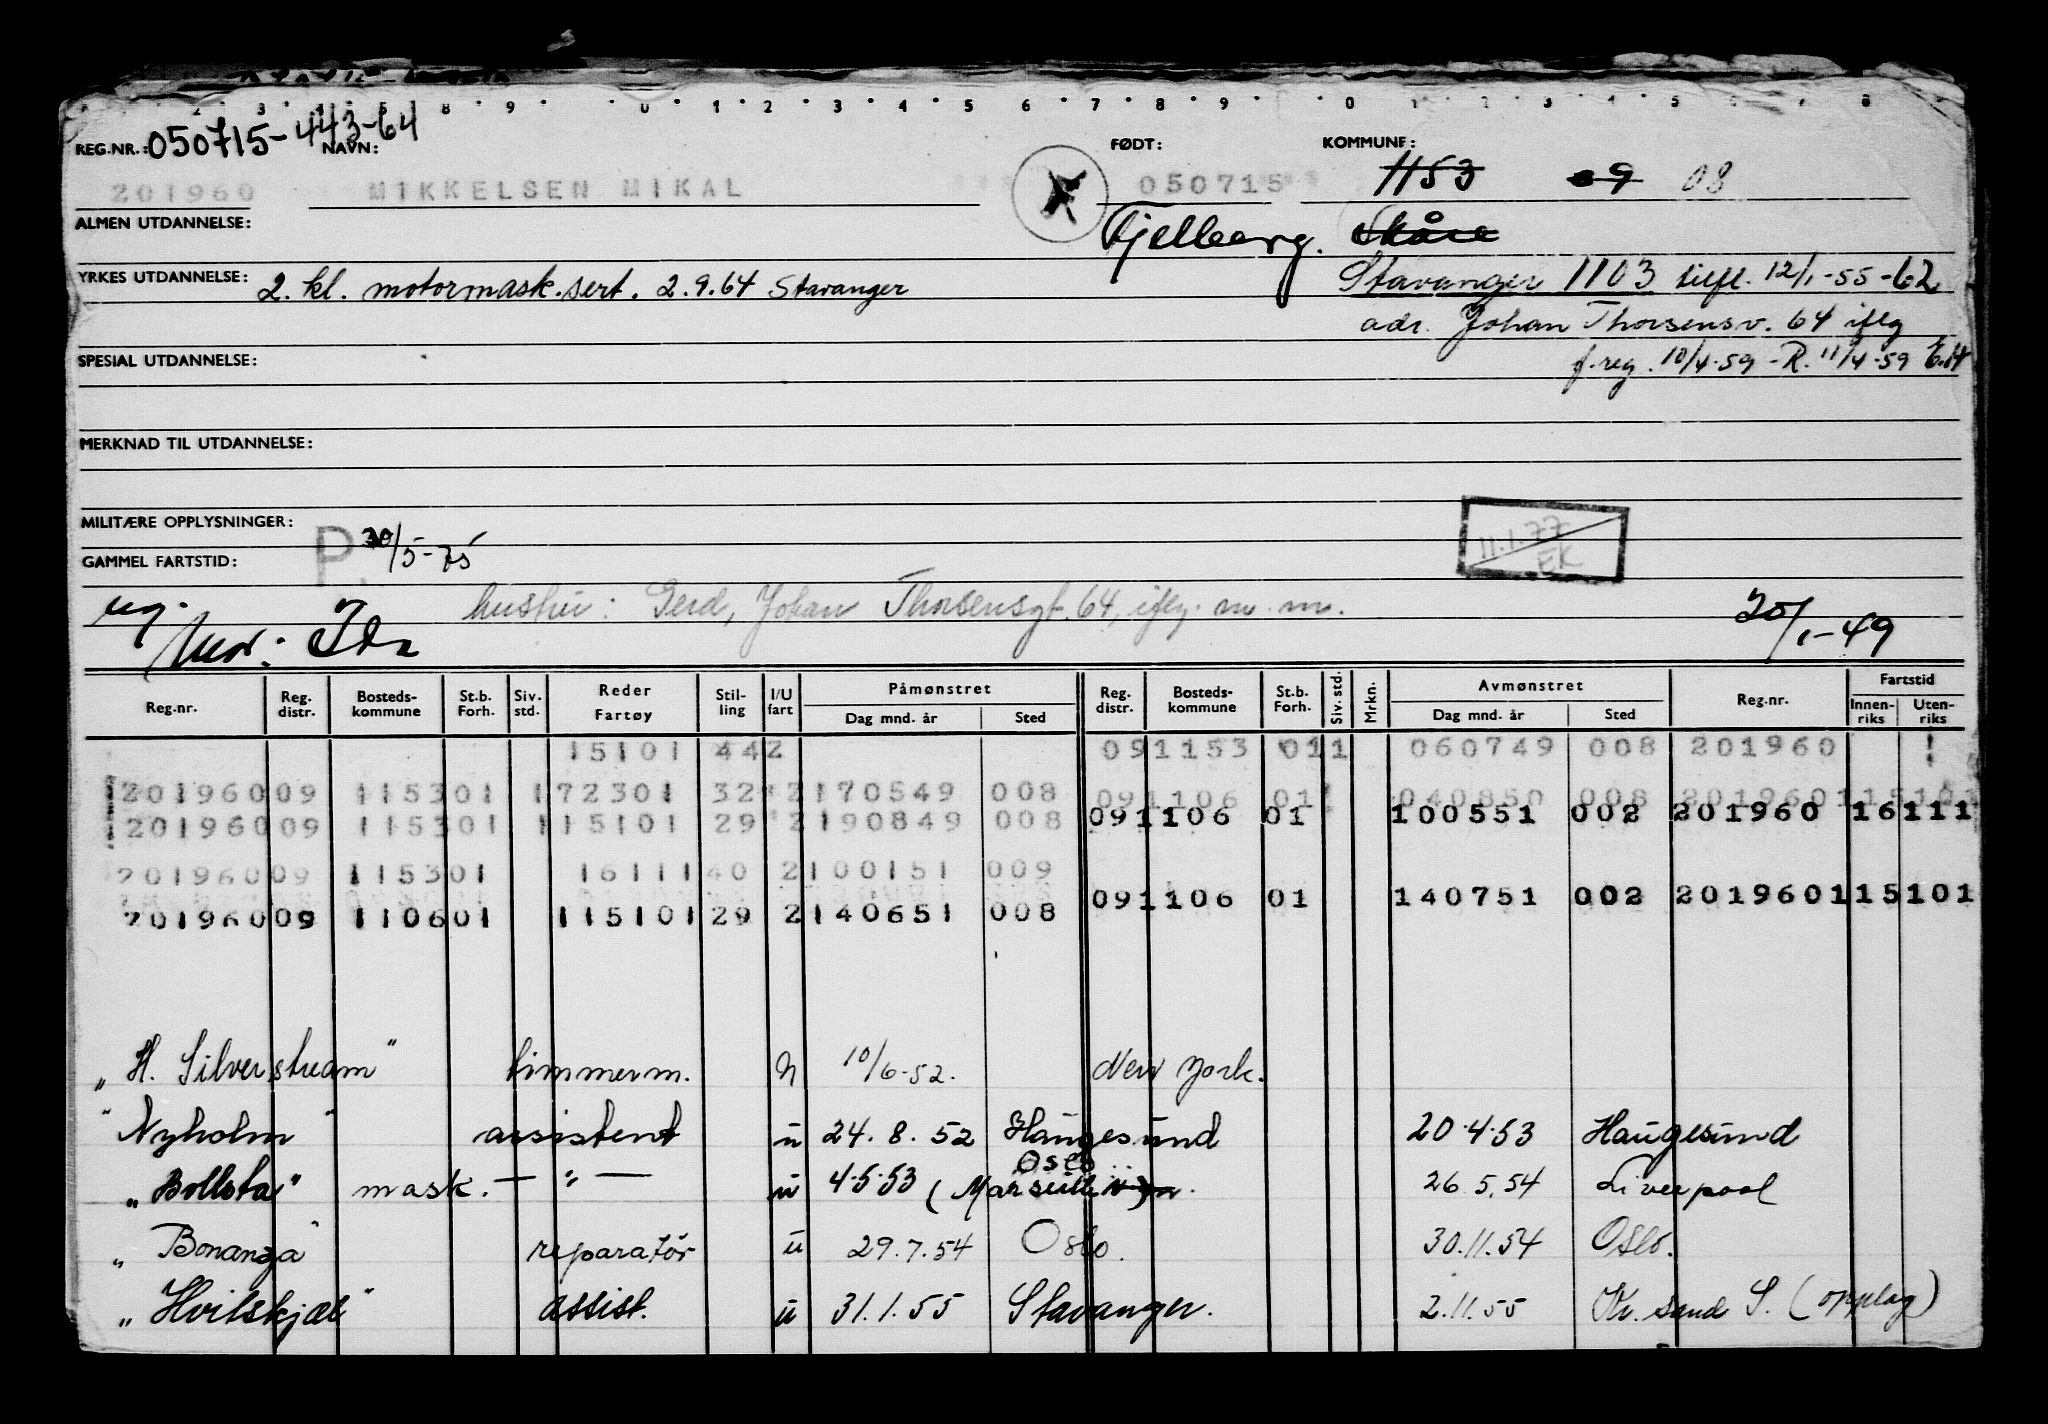 REG.NR.: 050715-443-64 NAVN: FØDT: KOMMUNE:
201960 MIKKELSEN MIKAL 050715 1153 09 08
ALMEN UTDANNELSE: Fjelberg. Skåre
YRKES UTDANNELSE: 2. kl. motormask.sert. 2.9.64 Stavanger Stavanger 1103 tilfl. 12/1-55-62
adr. Johan Thorsensv. 64 iflg
SPESIAL UTDANNELSE: f.reg. 10/4-59 - R. 11/4-59
MERKNAD TIL UTDANNELSE:
MILITÆRE OPPLYSNINGER: 11.1.77 EK
GAMMEL FARTSTID: P. 30/5-75
hustru: Gerd, Johan Thorsensgt. 64, iflg. m.m.
Mor: Ida 20/1-49
Reg.nr. Reg. distr. Bosteds-kommune St.b. Forh. Siv. std. Reder Fartøy Stil-ling I/U fart Påmønstret Dag mnd. år Sted Reg. distr. Bosteds-kommune St.b. Forh. Siv. std. Mrkn. Avmønstret Dag mnd. år Sted Reg.nr. Fartstid Innen-riks Uten-riks
15101 442 091153 011 060749 008 201960
20196009 115301 172301 32 2170549 008 091106 01 040850 008 201960115101
20196009 115301 115101 29 2190849 008 091106 01 100551 002 201960 16111
20196009 115301 16111 40 2100151 009
091106 01 140751 002 2019601 15101
20196009 110601 115101 29 2140651 008
"H. Silverstream" timmerm. 10/6-52. New York.
"Nyholm" assistent u 24.8.52 Haugesund 20.4.53 Haugesund
Oslo
"Bollsta" mask. — " — u 4.5.53 (Marseille) 26.5.54 Liverpool
"Bonanza" reparatör u 29.7.54 Oslo. 30.11.54 Oslo.
"Hvitskjæl" assist. u 31.1.55 Stavanger. 2.11.55 Kr.sand S. (opplag)